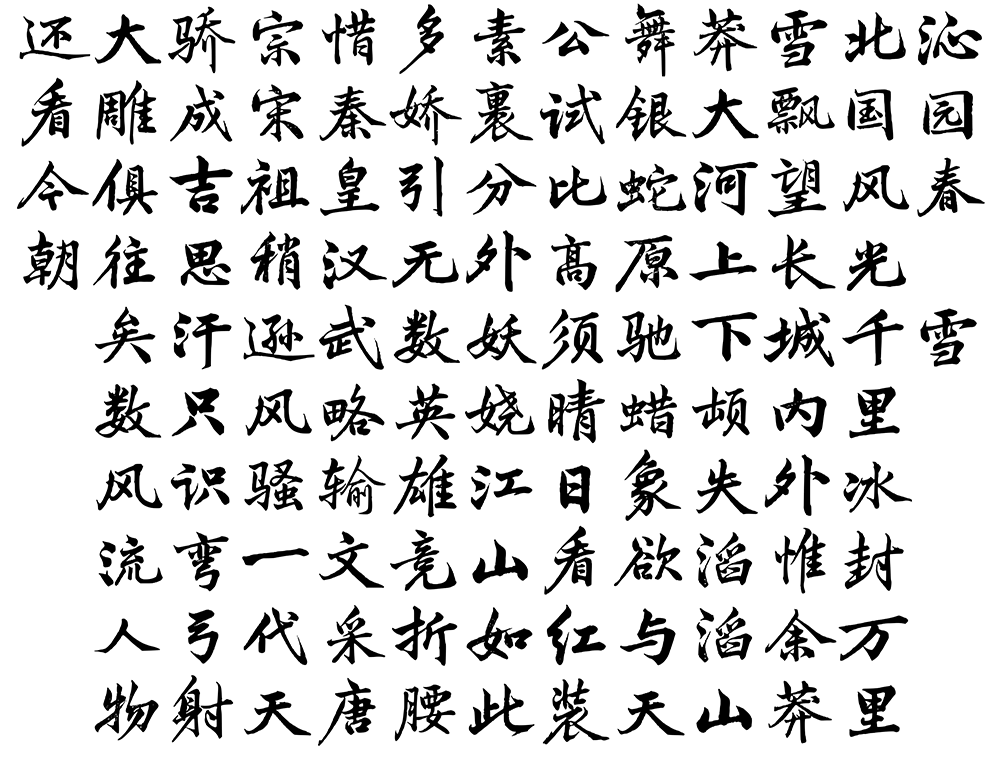 沁园春 雪
北国风光千里冰封万里
雪飘望长城内外惟余莽
莽大河上下顿失滔滔山
舞银蛇原驰蜡象欲与天
公试比高须晴日看红装
素裹分外妖娆江山如此
多娇引无数英雄竞折腰
惜秦皇汉武略输文采唐
宗宋祖稍逊风骚一代天
骄成吉思汗只识弯弓射
大雕俱往矣数风流人物
还看今朝